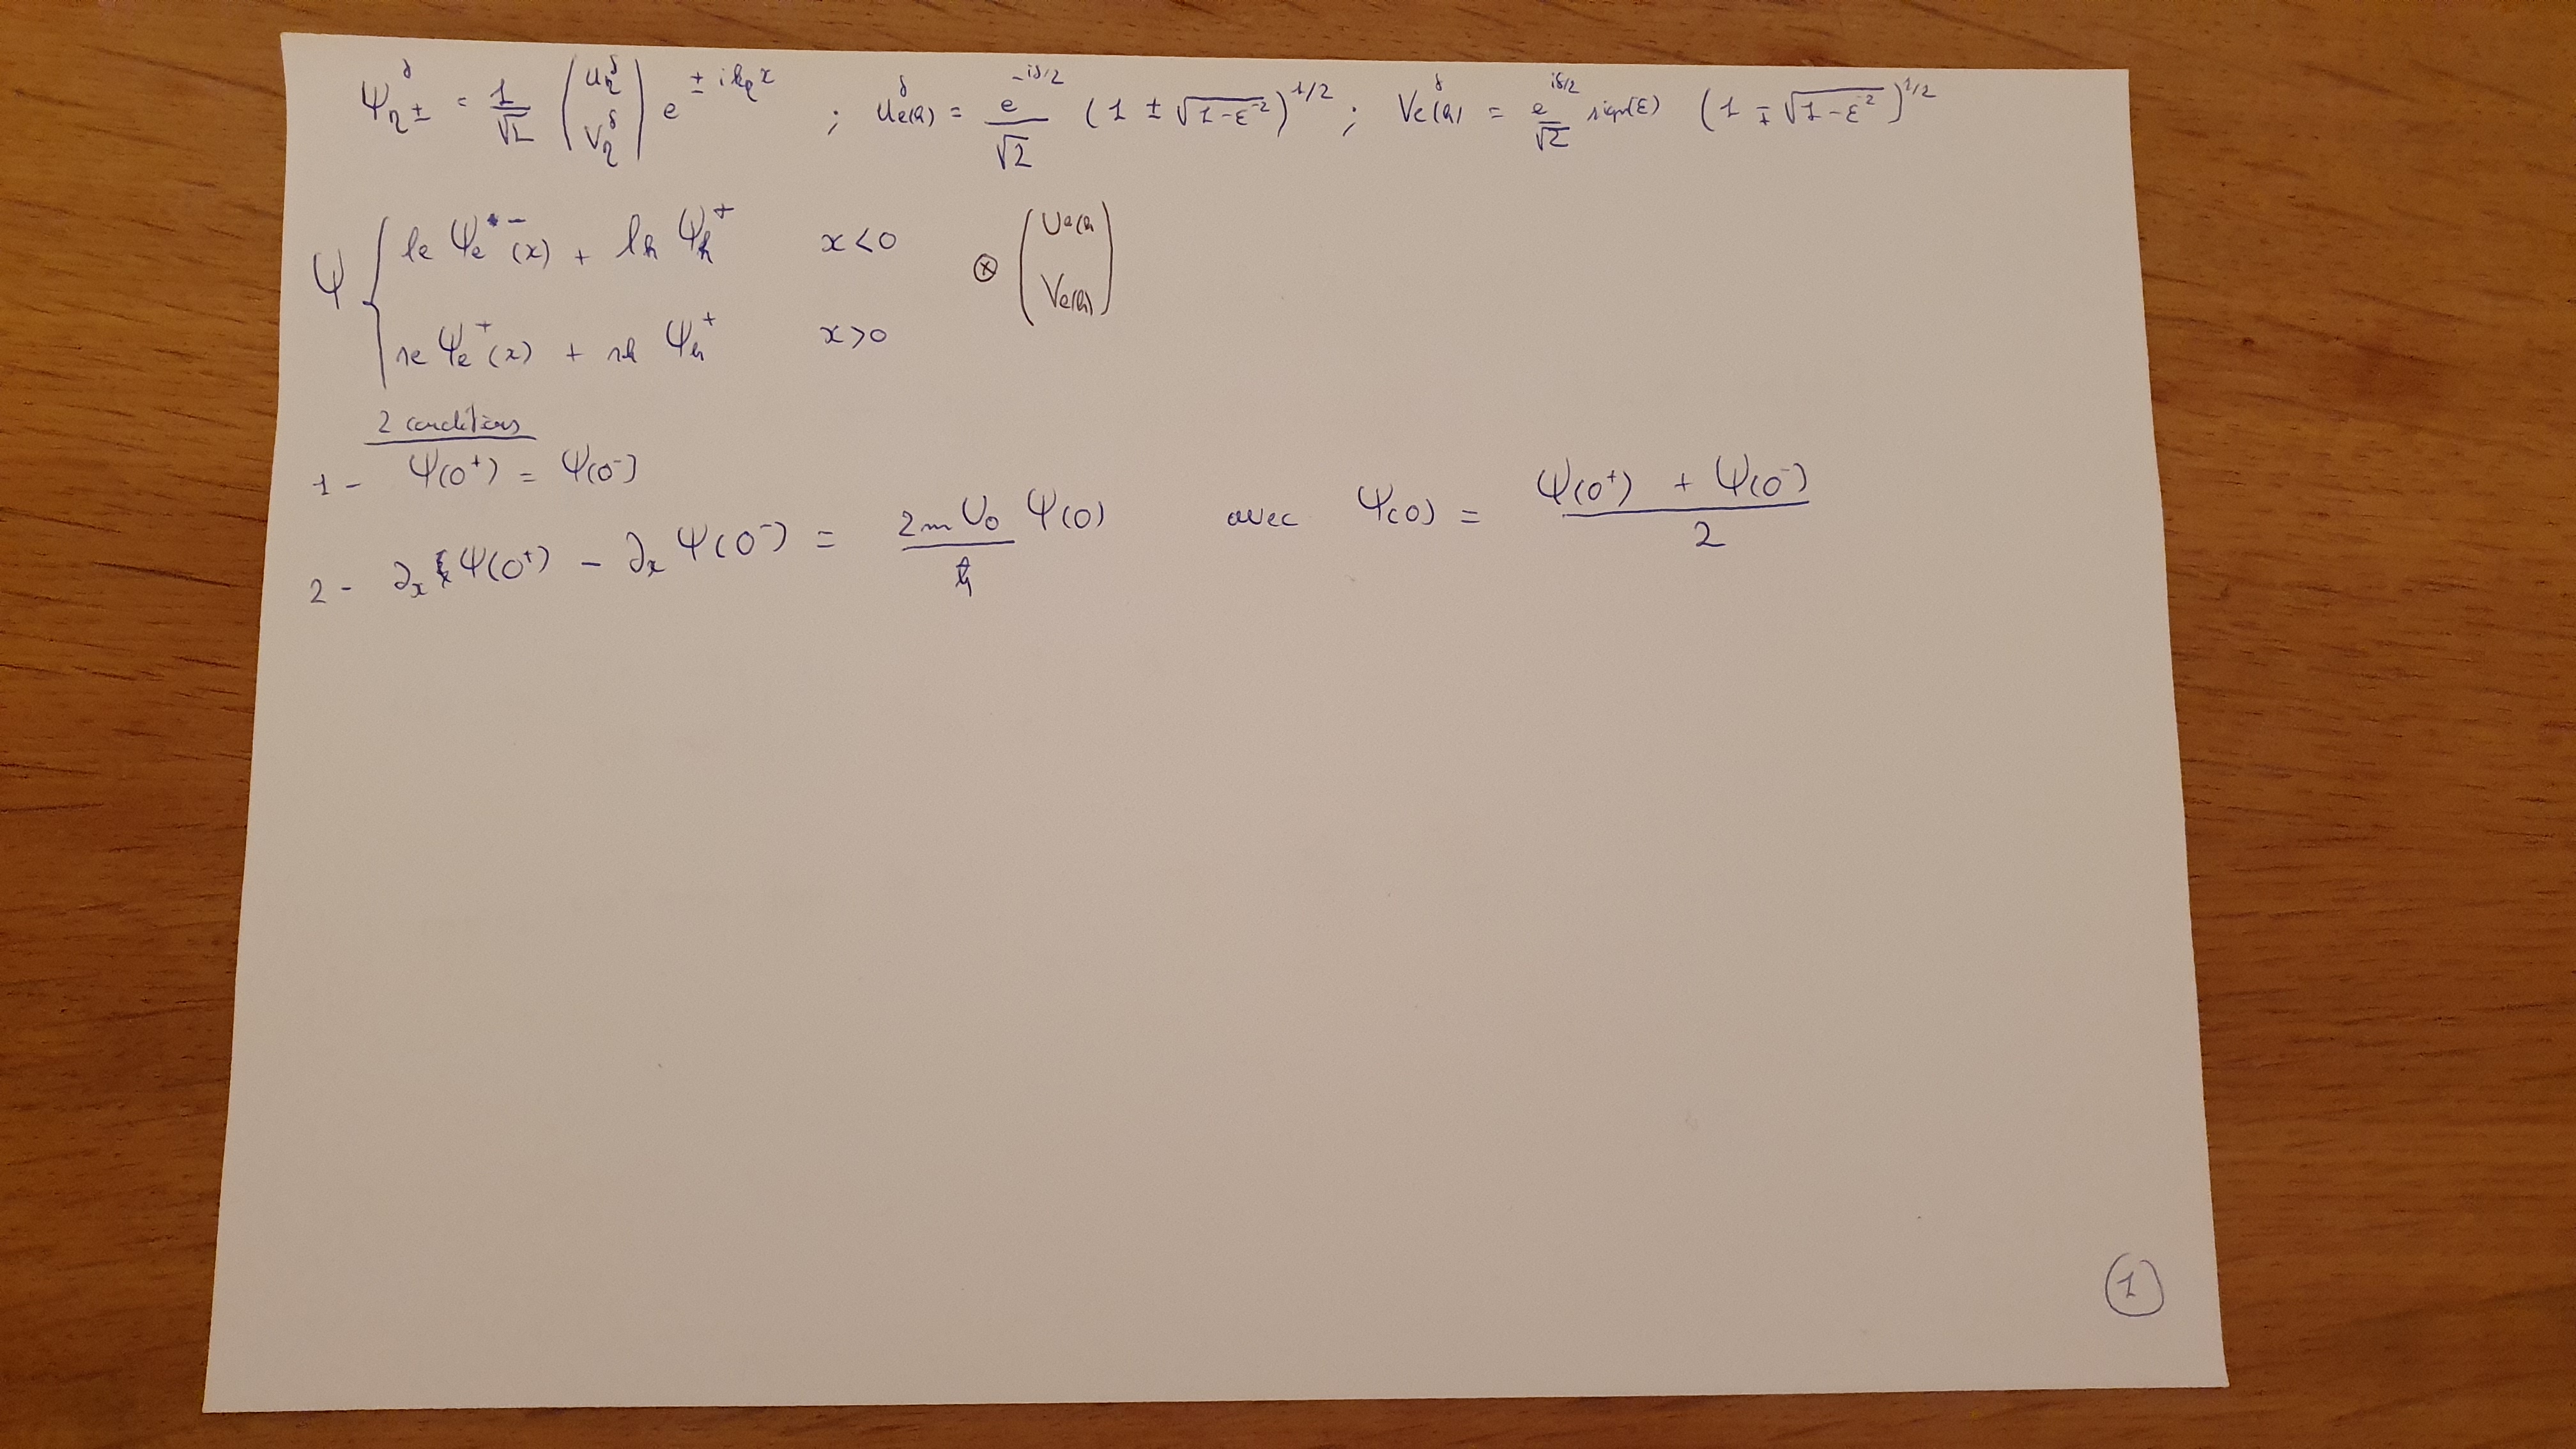 Ψ_η^δ ± = 1/√2 (u_η^δ / v_η^δ) e^{± i k_η x} ; u_{e(h)}^δ = e^{-iδ/2}/√2 (1 ± √(1-ε^{-2}))^{1/2} ; v_{e(h)}^δ = e^{iδ/2}/√2 sign(ε) (1 ∓ √(1-ε^{-2}))^{1/2}
Ψ { le Ψ_e^- (x) + lh Ψ_h^+ x<0
re Ψ_e^+ (x) + rh Ψ_h^+ x>0 ⊗ (u_{e(h)} / v_{e(h)})
2 conditions
1 - Ψ(0⁺) = Ψ(0⁻)
2 - ∂_x Ψ(0⁺) - ∂_x Ψ(0⁻) = 2mU_0/ħ Ψ(0) avec Ψ(0) = (Ψ(0⁺) + Ψ(0⁻))/2
1